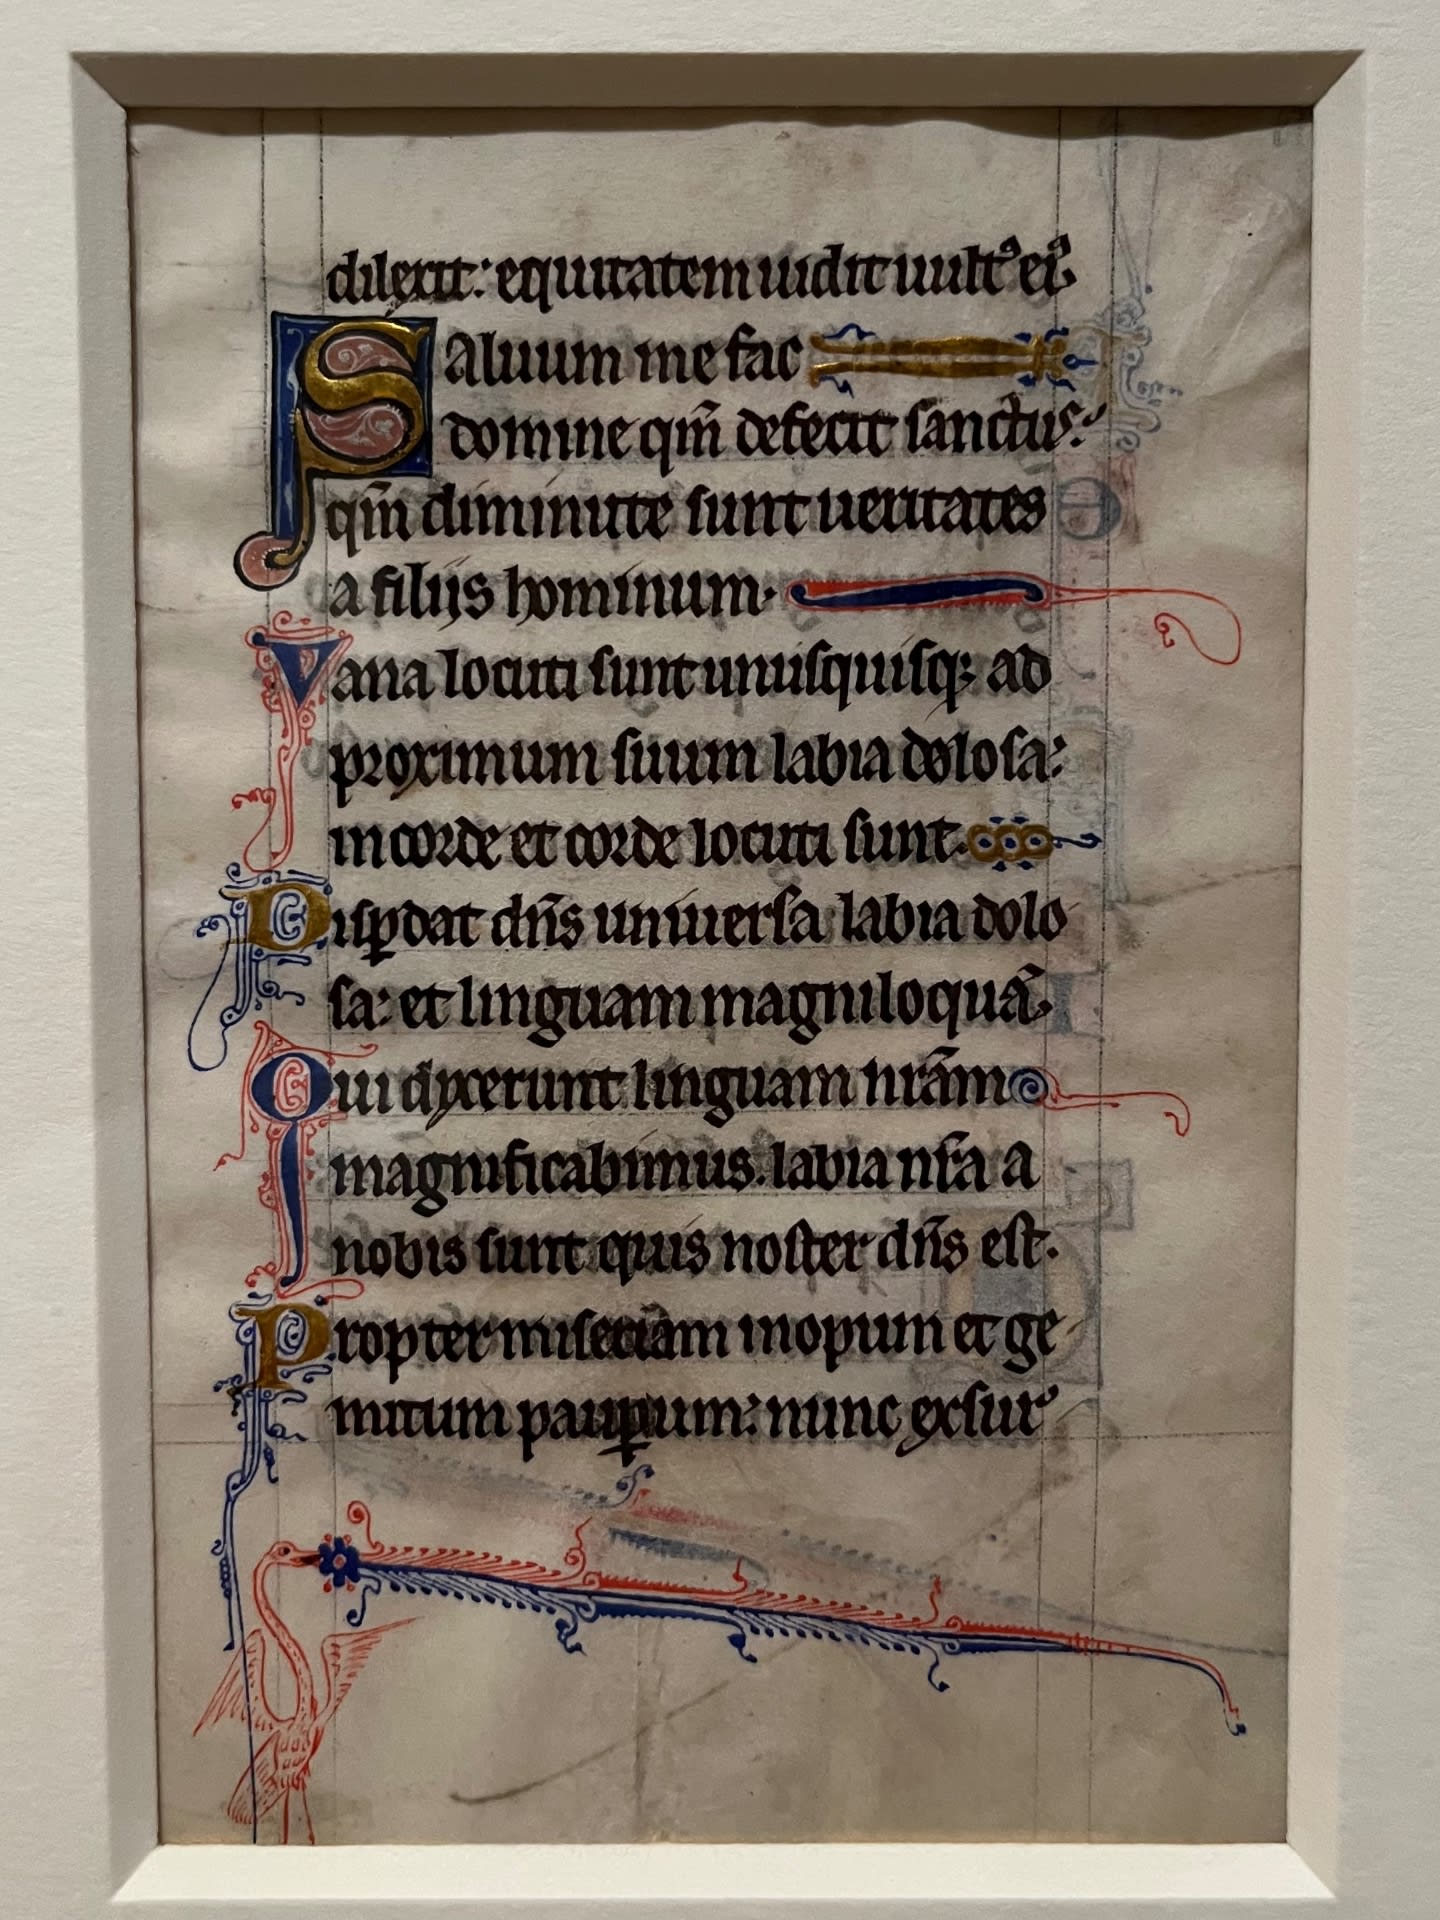 dilexit: equitatem uidit uultꝰ eiꝰ
Saluum me fac
domine qm̄ defecit sanctus:
qm̄ diminute sunt ueritates
a filijs hominum.
Vana locuti sunt unusquisqꝫ ad
proximum suum labia dolosa:
in corde et corde locuti sunt.
Disꝑdat dn̄s uniuersa labia dolo
sa: et linguam magniloquā.
Qui dixerunt linguam nrām
magnificabimus. labia nr̄a a
nobis sunt quis noster dn̄s est.
Propter miseriam inopum et ge
mitum pauꝑum: nunc exsur